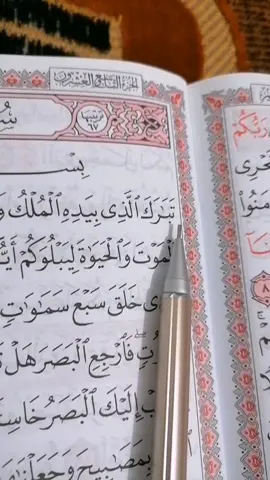 الجزء التاسع والعشرون
ترتيبها ٦٧ سُو
بِسْ
تَبَٰرَكَ ٱلَّذِى بِيَدِهِ ٱلْمُلْكُ وَ
ٱلْمَوْتَ وَٱلْحَيَوٰةَ لِيَبْلُوَكُمْ أَيُّ
ى خَلَقَ سَبْعَ سَمَٰوَٰتٍ
تٍ فَٱرْجِعِ ٱلْبَصَرَ هَلْ تَ
بْ إِلَيْكَ ٱلْبَصَرُ خَاسِئً
بِمَصَٰبِيحَ وَجَعَلْنَٰهَا
رَبُّكُمْ